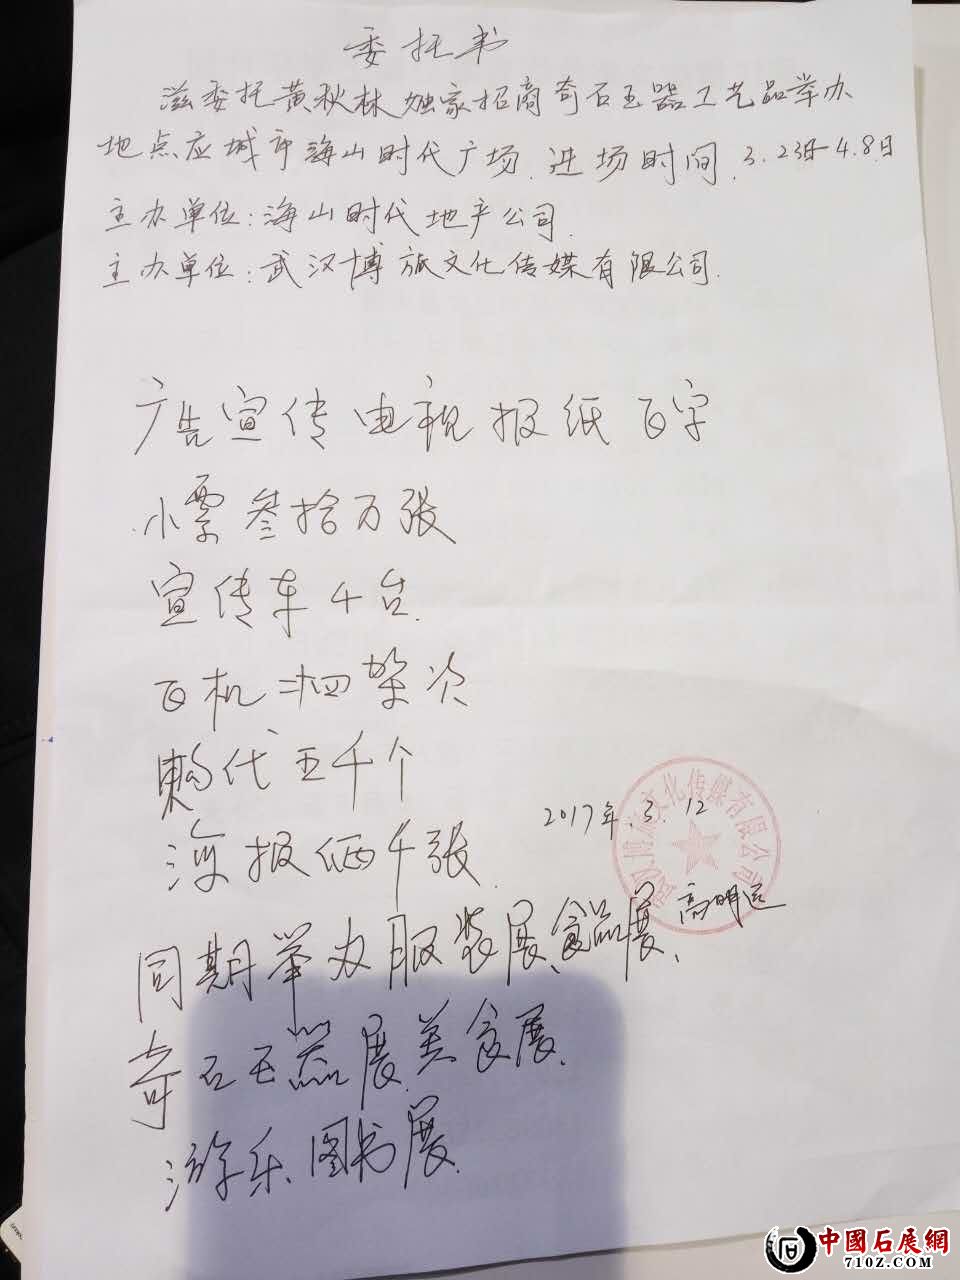 委托书
滋委托黄秋林独家招商奇石玉器工艺品举办
地点应城市海山时代广场.进场时间.3.23日-4.8日
主办单位:海山时代地产公司.
主办单位:武汉博旅文化传媒有限公司.
广告宣传电视报纸百字
小票叁拾万张
宣传车4台.
百机 架次
代五千个
海报俩千张.
武汉博旅文化传媒有限公司
2017年.3.12
高明远
同期举办服装展、食品展、
奇石玉器展.美食展.
游乐.图书展.
中國石展網
710Z.COM